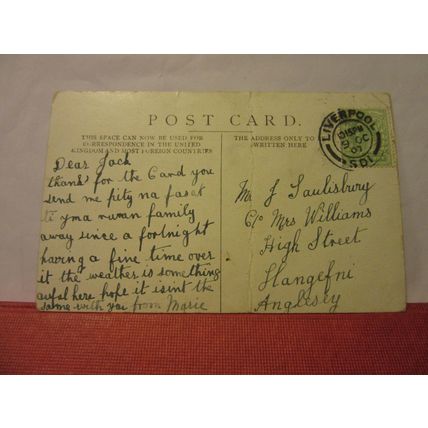 POST CARD.
THIS SPACE CAN NOW BE USED FOR
CORRESPONDENCE IN THE UNITED
KINGDOM AND MOST FOREIGN COUNTRIES
THE ADDRESS ONLY TO
WRITTEN HERE
LIVERPOOL
12 15 PM
9 OC
S.D.1
Dear Jack
thanks for the Card you
send me pity na faset
ti yma rwan family
away since a fortnight
having a fine time over
it the weather is something
awful here hope it isint the
same with you from Marie
Mr J Saulisbury
C/o Mrs Williams
High Street
Llangefni
Anglesey